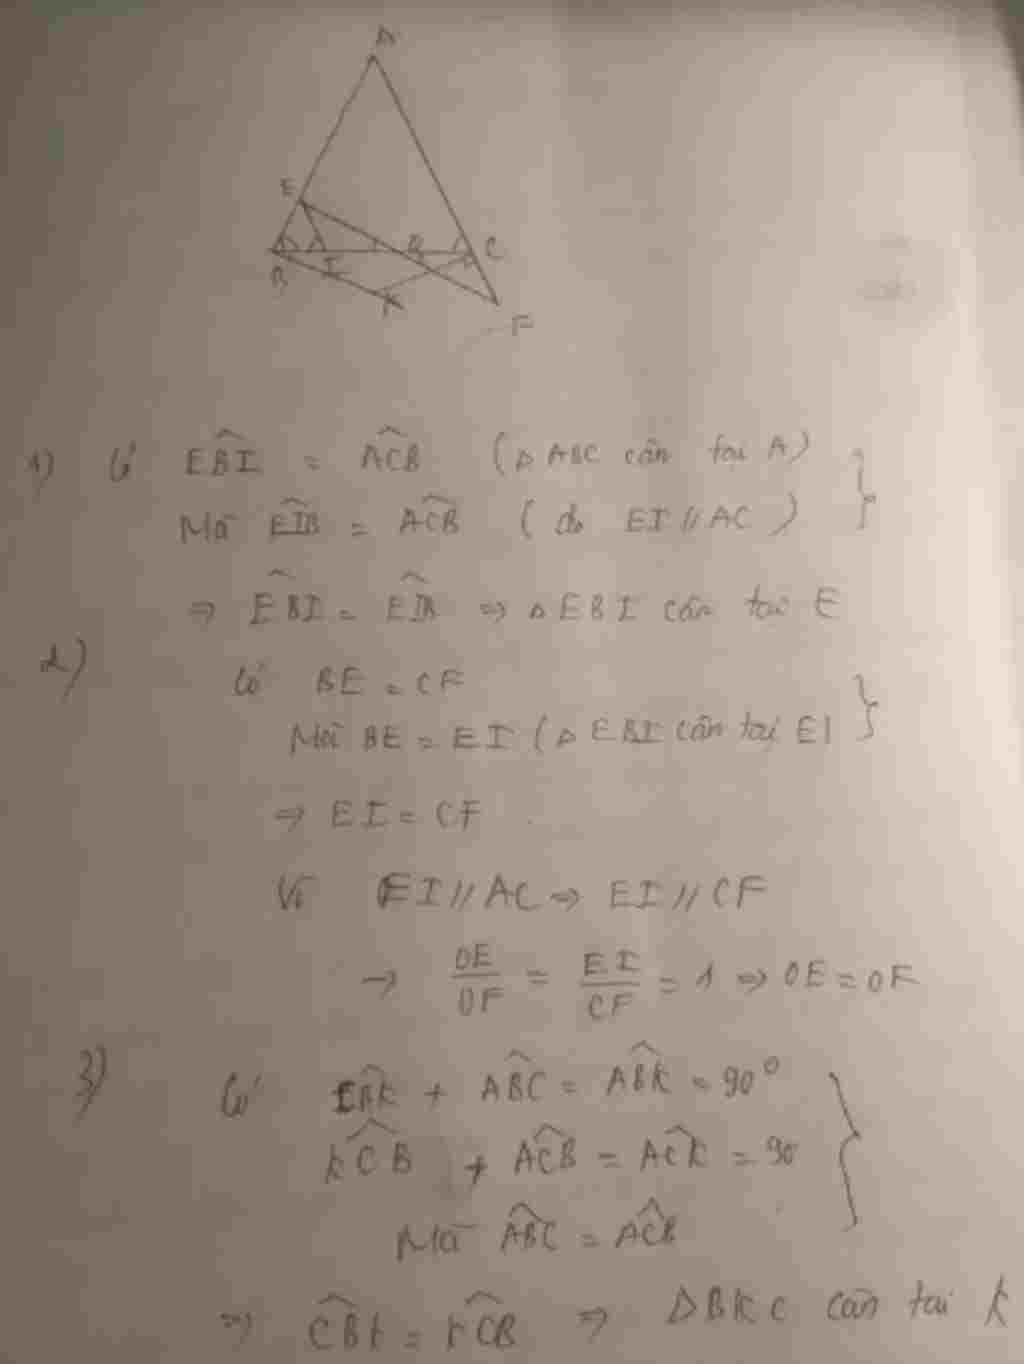 A
E
B
I
O
C
K
F
1) Có EBI = ACB (Δ ABC cân tại A)
Mà EIB = ACB (do EI // AC)
⇒ EBI = EIB ⇒ Δ EBI cân tại E
2)
Có BE = CF
Mà BE = EI (Δ EBI cân tại E)
⇒ EI = CF
Vì EI // AC ⇒ EI // CF
→ OE/OF = EI/CF = 1 ⇒ OE = OF
3) Có IBK + ABC = ABK = 90°
KCB + ACB = ACK = 90
Mà ABC = ACB
⇒ CBK = KCB ⇒ ΔBKC cân tại K